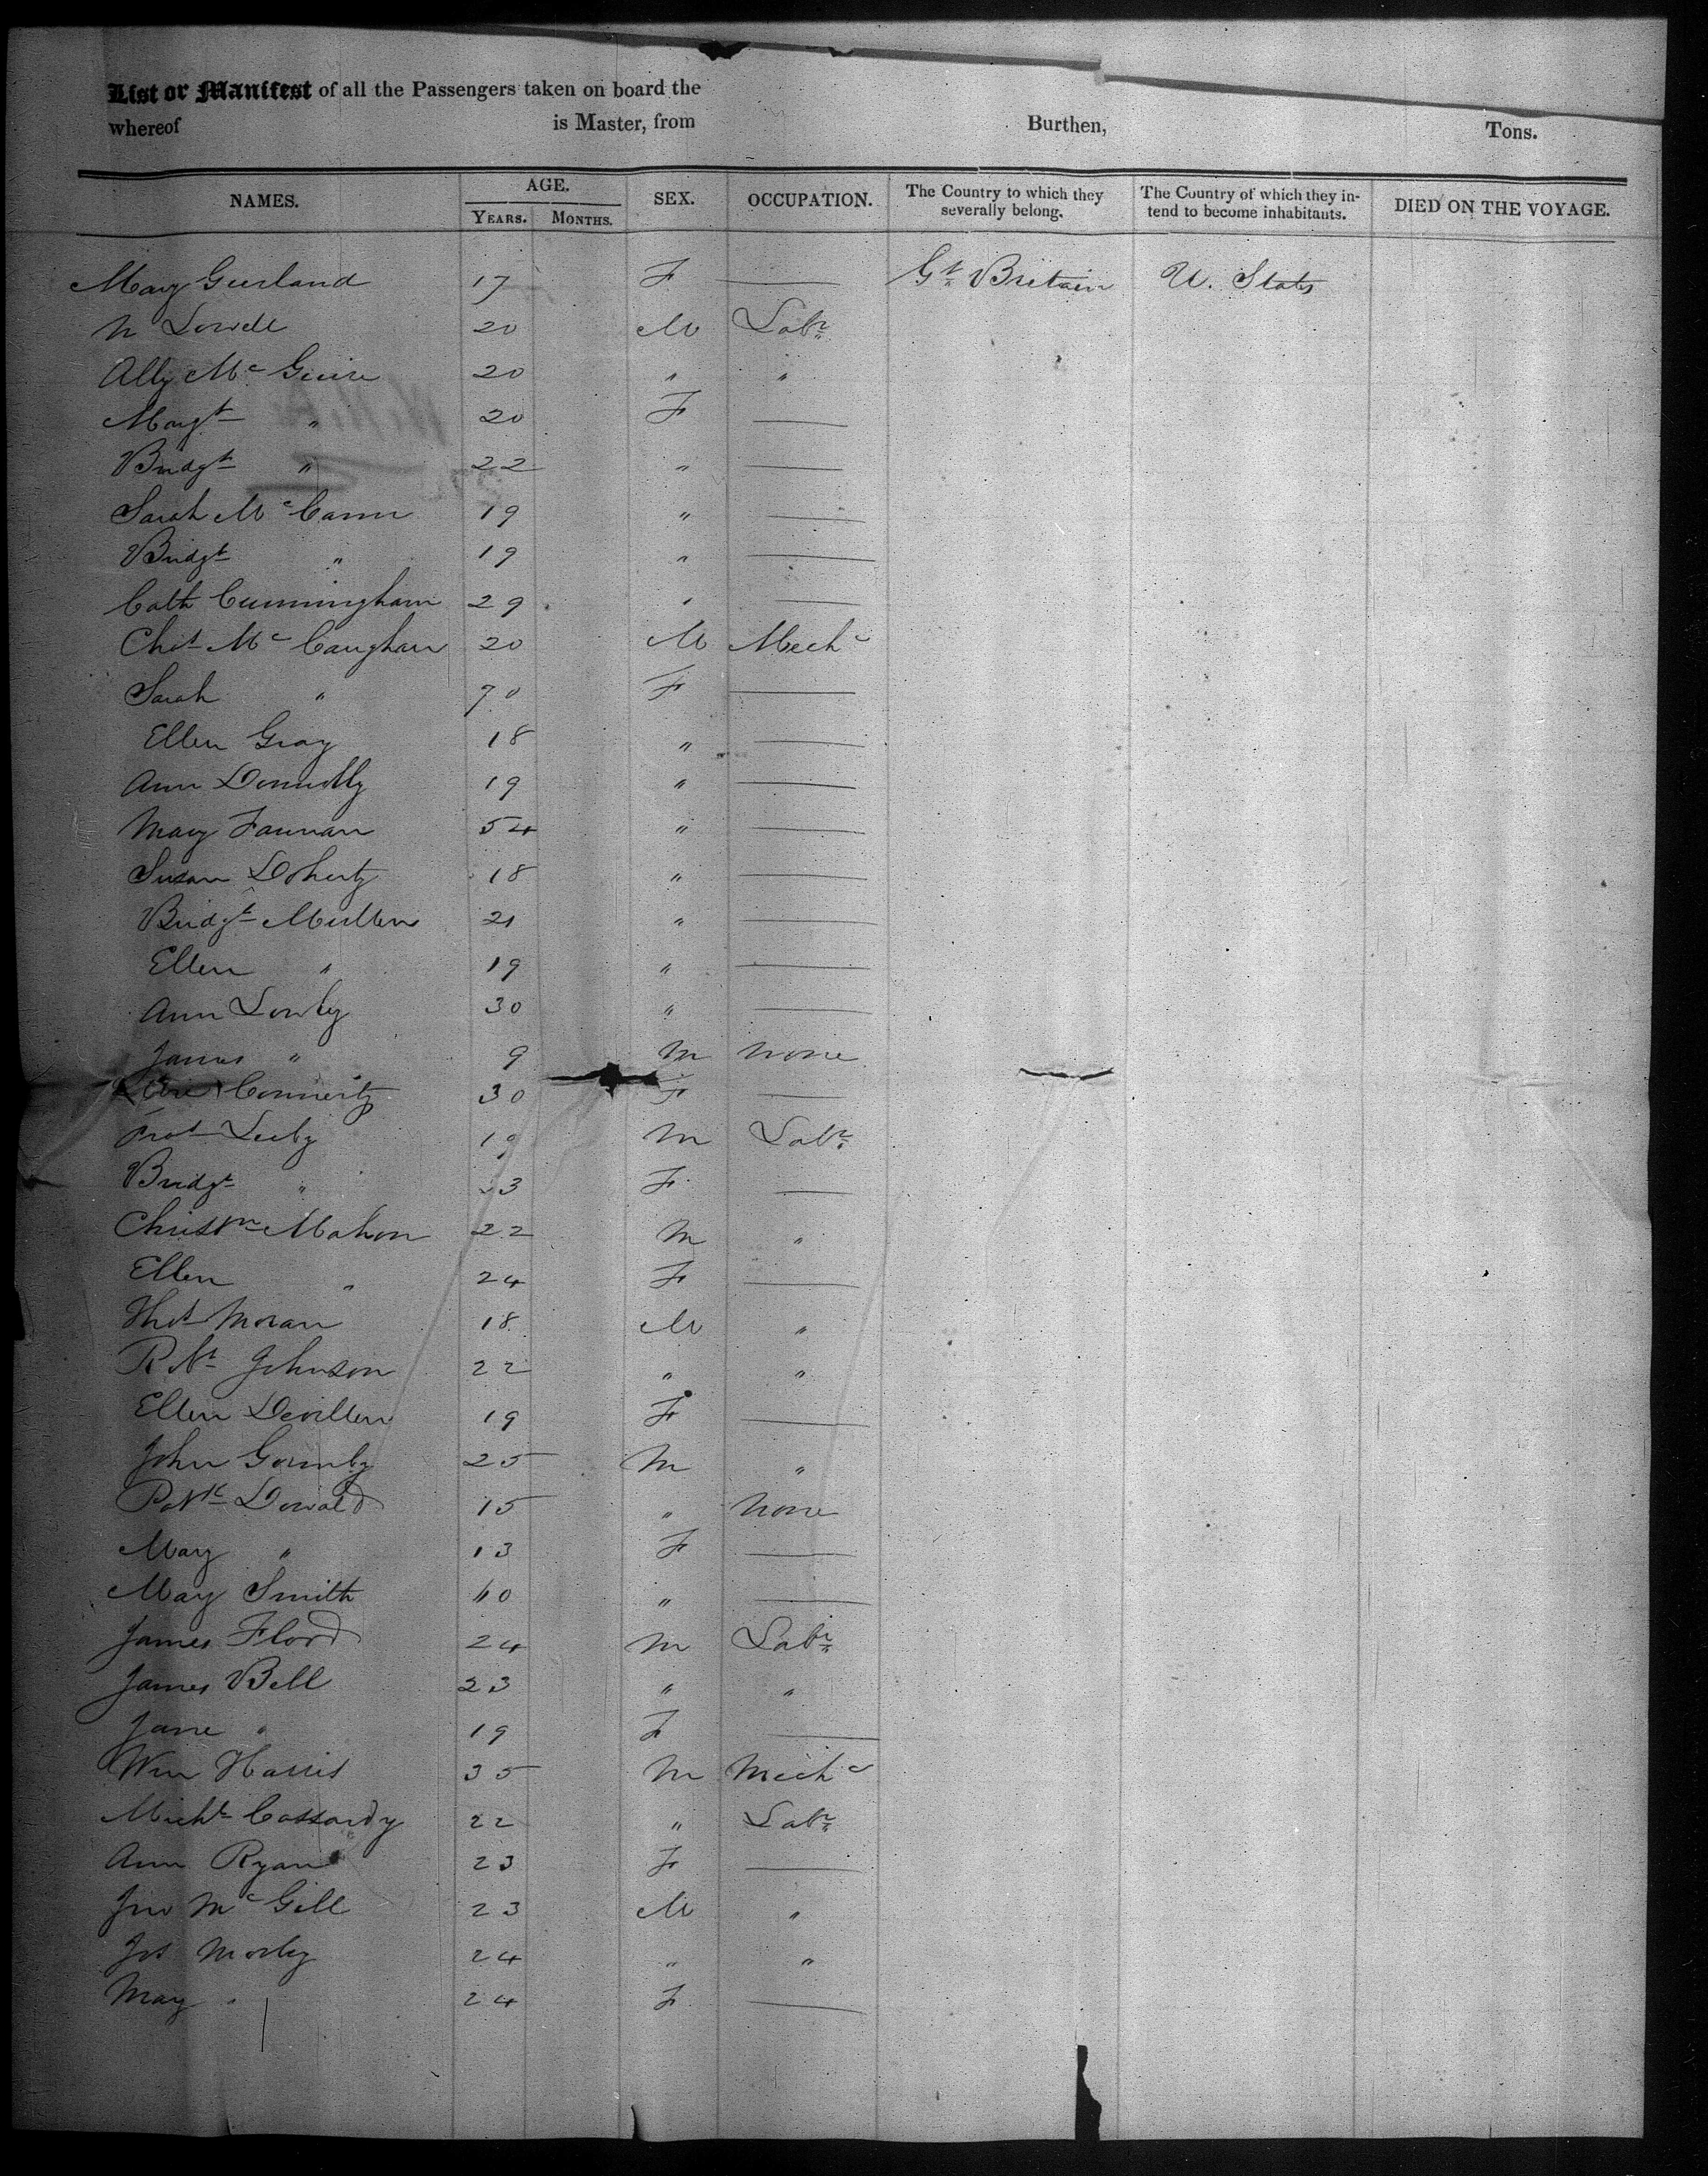 List or Manifest of all the Passengers taken on board the
whereof is Master, from Burthen, Tons.
NAMES. AGE. YEARS. MONTHS. SEX. OCCUPATION. The Country to which they severally belong. The Country of which they intend to become inhabitants. DIED ON THE VOYAGE.
Mary 17 F — Gt Britain U. States
20 M Labr
Ally Mc Guire 20 " "
Margt " 20 F —
Bridgt " 22 " —
Sarah Mc Cann 19 " —
Bridgt " 19 " —
Cath Cunningham 29 " —
Mc Caughan 20 M Mechc
Sarah " 70 F —
Ellen Gray 18 " —
Ann Donnolly 19 " —
Mary Fannan 54 " —
Susan Doherty 18 " —
Bridgt Mullen 21 " —
Ellen " 19 " —
Ann 30 " —
James " 9 M None
30 F —
19 M Labr
Bridgt " F —
Mahon 22 M "
Ellen " 24 F —
Thos Moran 18 M "
Robt Johnson 22 " "
Ellen Devillen 19 F —
John Gormly 25 M "
Patk 15 " None
Mary " 13 F —
Mary Smith 60 " —
James 24 M Labr
James Bell 23 " "
Jane " 19 F —
Wm Harris 35 M Mechc
Michl Cassardy 22 " Labr
Ann Ryan 23 F —
Jno Mc Gill 23 M "
Jos 24 " "
Mary " 24 F —